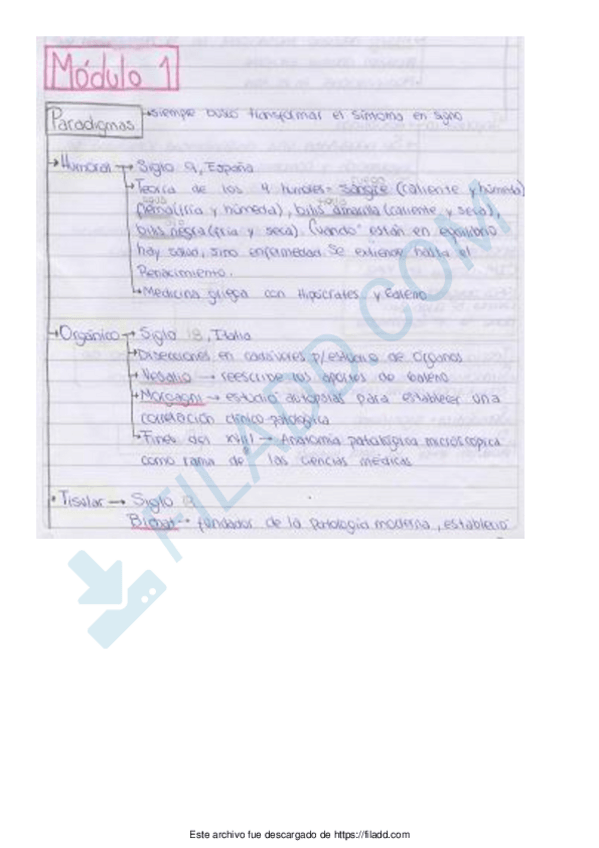 Módulo 1
Paradigmas → siempre busco transformar el síntoma en signo
→ Humoral → Siglo 9, España
→ Teoría de los 4 humores = sangre (caliente y húmeda)
flema (fría y húmeda), bilis amarilla (caliente y seca),
bilis negra (fría y seca). Cuando están en equilibrio
hay salud, sino enfermedad. Se extiende hasta el
Renacimiento.
→ Medicina griega con Hipócrates y Galeno
→ Orgánico → Siglo 18, Italia
→ Disecciones en cadáveres p/estudio de órganos
→ Vesalio → reescribe los aportes de Galeno
→ Morgagni → estudio autopsias para establecer una
correlación clínico-patológica
→ Fines del XVIII → Anatomía patológica microscópica
como rama de las ciencias médicas
• Tisular → Siglo
Bichat → fundador de la patología moderna, estableció
FILADD.COM
Este archivo fue descargado de https://filadd.com